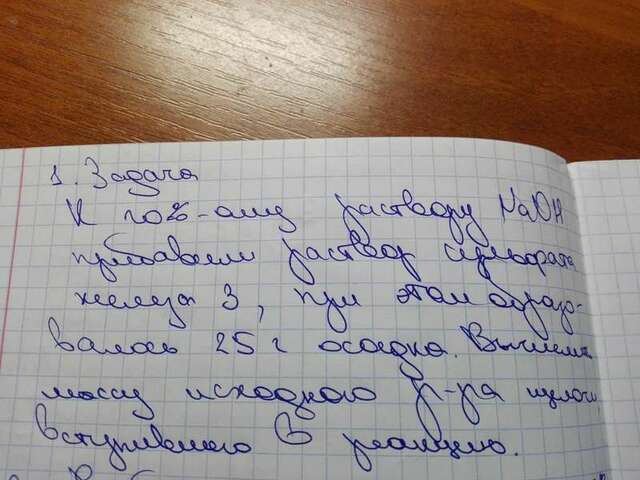 1. Задача
К 10%-ому раствору NaOH
прибавили раствор сульфата
железа 3, при этом образо-
валось 25 г осадка. Вычислить
массу исходного р-ра щелочи,
вступившего в реакцию.